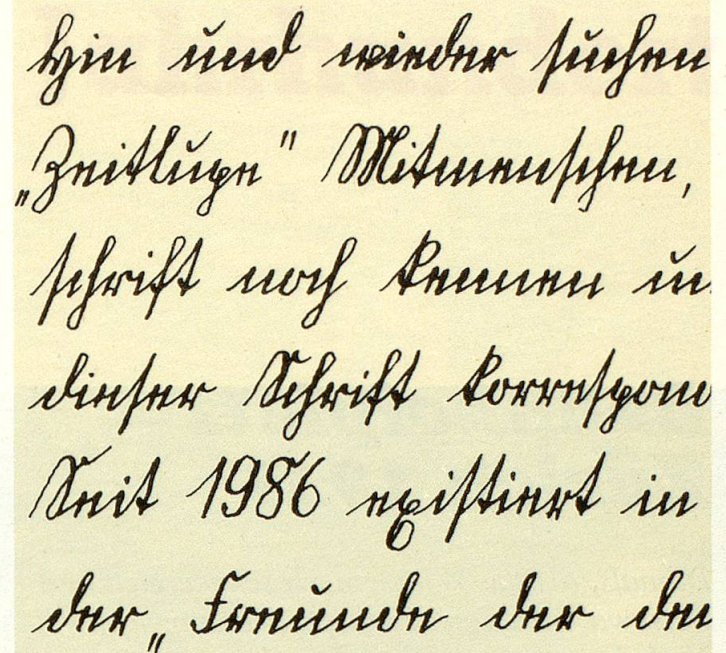 Hin und wieder suchen
„Zeitlupe" Mitmenschen,
schrift noch kennen un
dieser Schrift korrespon
Seit 1986 existiert in
der „Freunde der deu